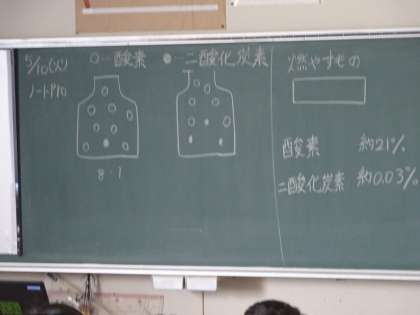 5/10(火)
ノートP10
○…酸素
●…二酸化炭素
8:1
燃やすもの
酸素 約21%
二酸化炭素 約0.03%